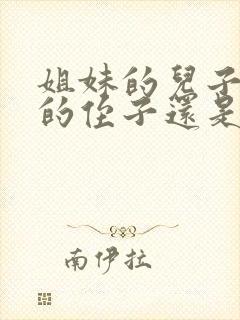 姐妹的兒子
的侄子還是
南伊拉